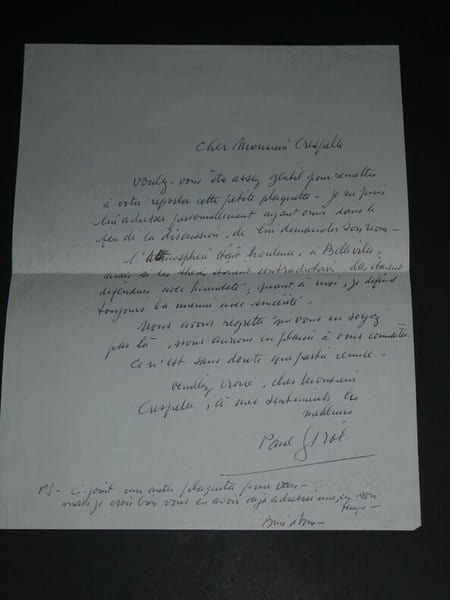 Cher Monsieur Crespelle
Voulez-vous être assez gentil pour remettre
à votre reporter cette petite plaquette - Je ne puis
lui adresser personnellement ayant omis dans le
feu de la discussion, de lui demander son nom -
L'Atmosphère était houleuse, à Belleville,
mais si les thèses étaient contradictoires, elles étaient
défendues avec honnêteté, quant à moi, je défend
toujours la mienne avec sincérité -
Nous avons regretté que vous ne soyez
pas là, nous aurions eu plaisir à vous
Ce n'est sans doute que partie remise -
Veuillez croire, cher Monsieur
Crespelle, à mes sentiments les
meilleurs
Paul
PS - Ci-joint une autre plaquette pour vous -
mais je crois bien vous en avoir déjà adressé une, en son
temps -
Bien à vous -